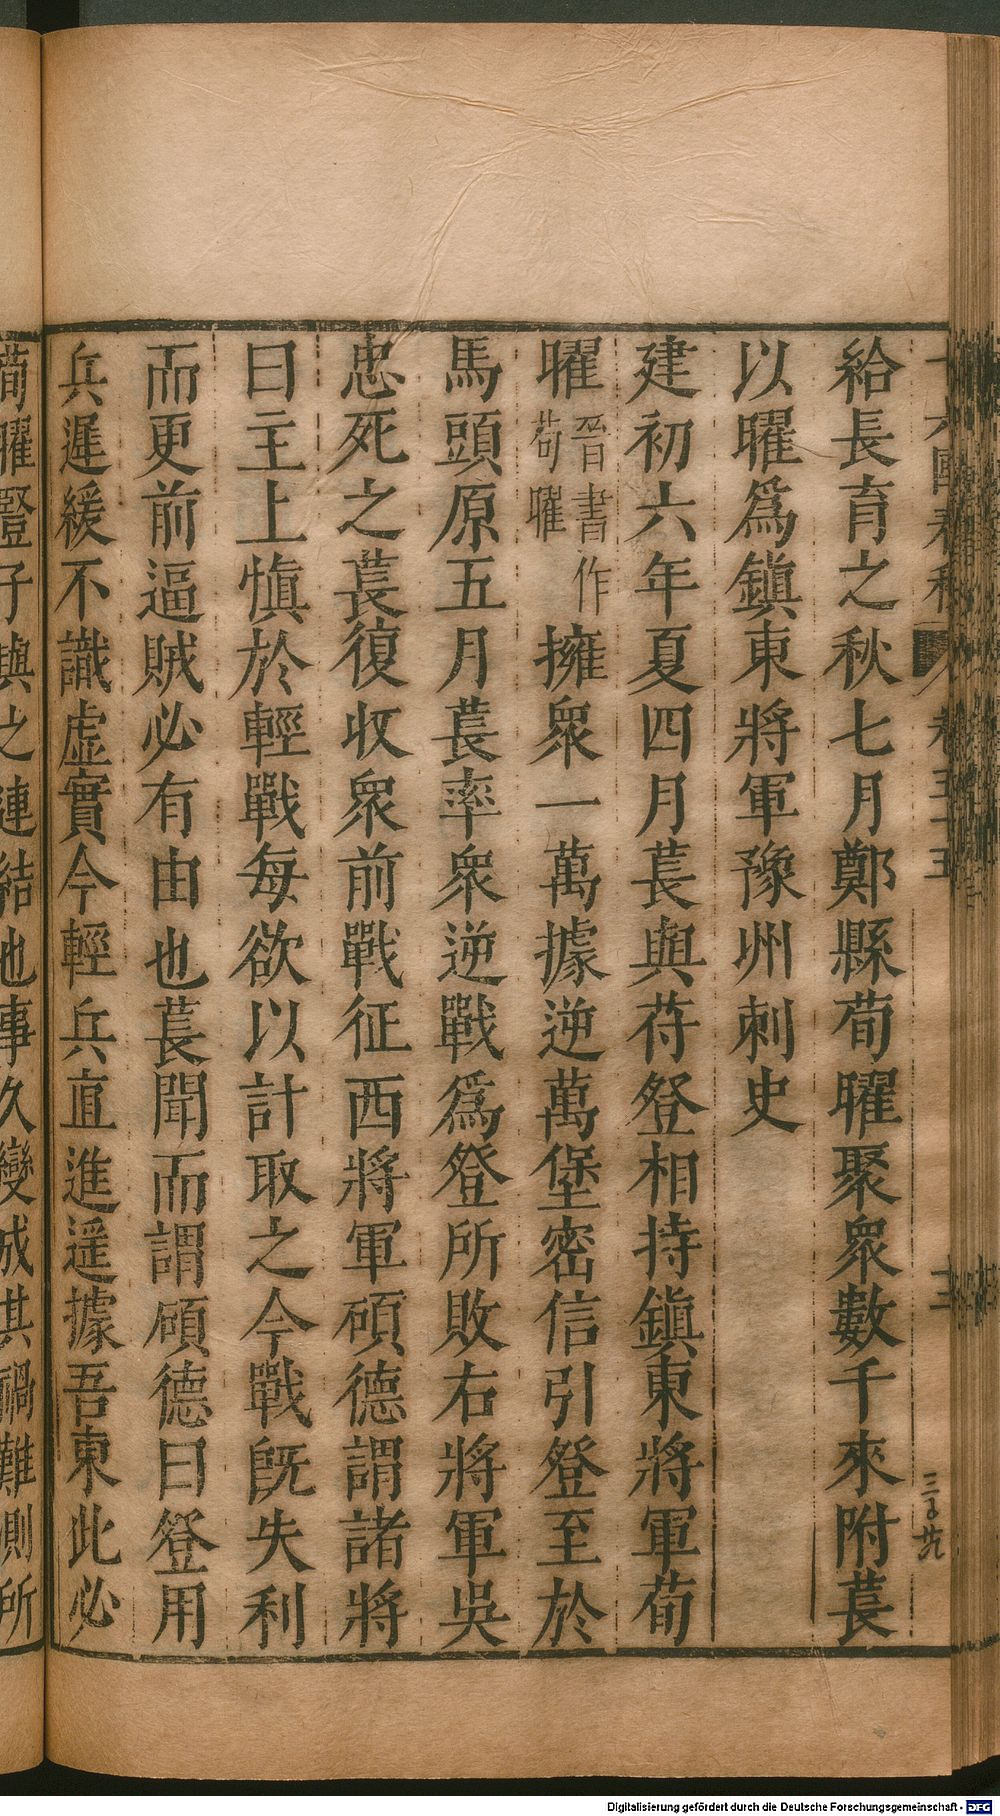 給長育之秋七月鄭縣荀曜聚眾數千來附萇
以曜爲鎮東將軍豫州刺史
建初六年夏四月萇與苻登相持鎮東將軍荀
曜晉書作苟曜擁眾一萬據逆萬堡密信引登至於
馬頭原五月萇率眾逆戰爲登所敗右將軍吳
忠死之萇復收眾前戰征西將軍碩德謂諸將
曰主上慎於輕戰每欲以計取之今戰旣失利
而更前逼賊必有由也萇聞而謂碩德曰登用
兵遲緩不識虛實今輕兵直進遥據吾東此必
荀曜豎子與之連結也事久變成其禍難測所
Digitalisierung gefördert durch die Deutsche Forschungsgemeinschaft - DFG